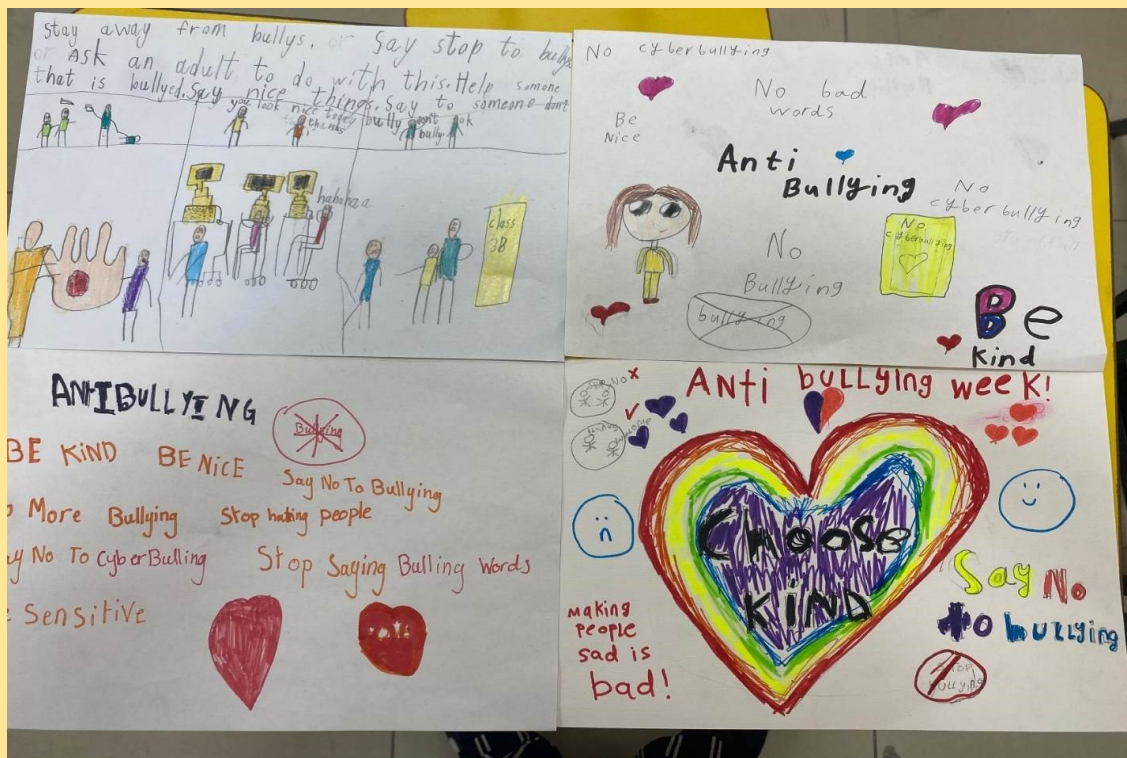 stay away from bullys, or Say stop to bullys
or Ask an adult to do with this. Help somone
that is bullyed. Say nice things. Say to someone dont
bully
you look nice today
thanks
dont
bully
ok
hahahaa
class
3B
No cyberbullying
No bad
words
Be
Nice
Anti
Bullying
No
cyberbullying
No
cyberbullying
No
Bullying
bullying
Be
kind
ANTIBULLYING
Bullying
BE KIND BE NiCE
Say No To Bullying
More Bullying Stop hating people
No To CyberBulling Stop Saying Bulling Words
Sensitive
ANti bullying week!
NO
CHOOSE
KIND
making
people
sad is
bad!
Say No
to bullying
STOP
bullying